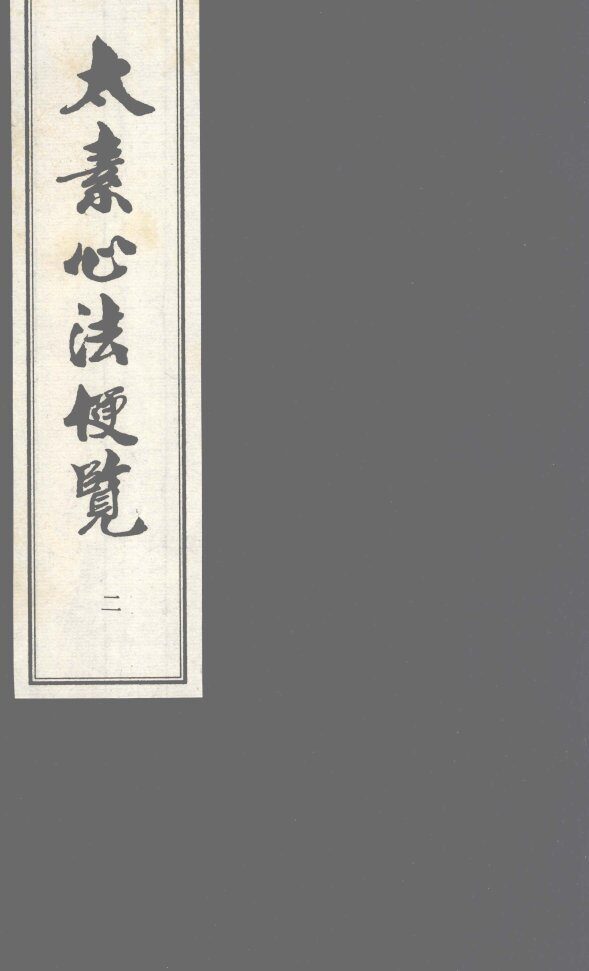 太素心法便覧
二